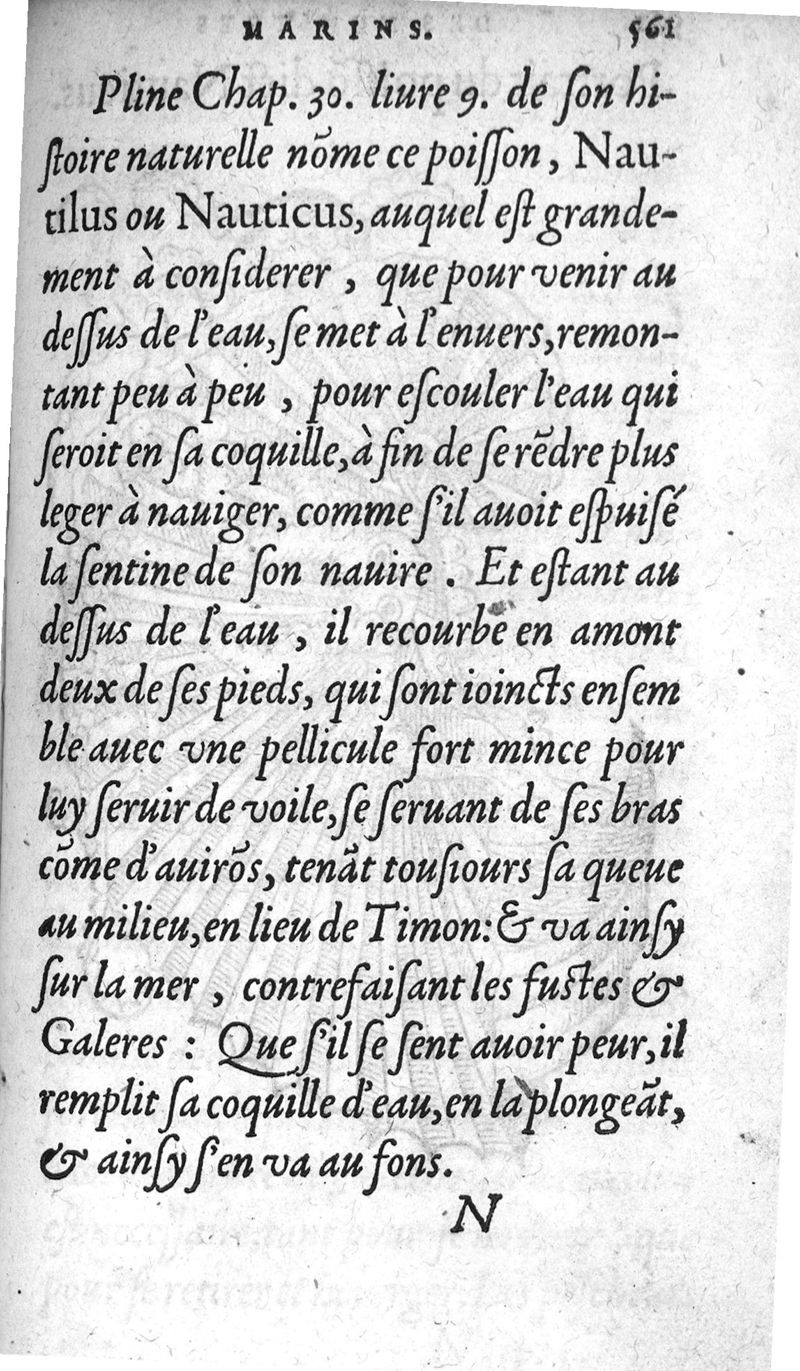 MARINS. 561
Pline Chap. 30. liure 9. de ſon hi-
ſtoire naturelle nõme ce poiſſon, Nau-
tilus ou Nauticus, auquel eſt grande-
ment à conſiderer, que pour venir au
deſſus de l'eau, ſe met à l'enuers, remon-
tant peu à peu, pour eſcouler l'eau qui
ſeroit en ſa coquille, à fin de ſe rẽdre plus
leger à nauiger, comme ſ'il auoit eſpuiſé
la ſentine de ſon nauire. Et eſtant au
deſſus de l'eau, il recourbe en amont
deux de ſes pieds, qui ſont ioincts enſem
ble auec vne pellicule fort mince pour
luy ſeruir de voile, ſe ſeruant de ſes bras
cõme d'auirõs, tenãt touſiours ſa queue
au milieu, en lieu de Timon: & va ainſy
ſur la mer, contrefaiſant les fuſtes &
Galeres : Que ſ'il ſe ſent auoir peur, il
remplit ſa coquille d'eau, en la plongeãt,
& ainſy ſ'en va au fons.
N